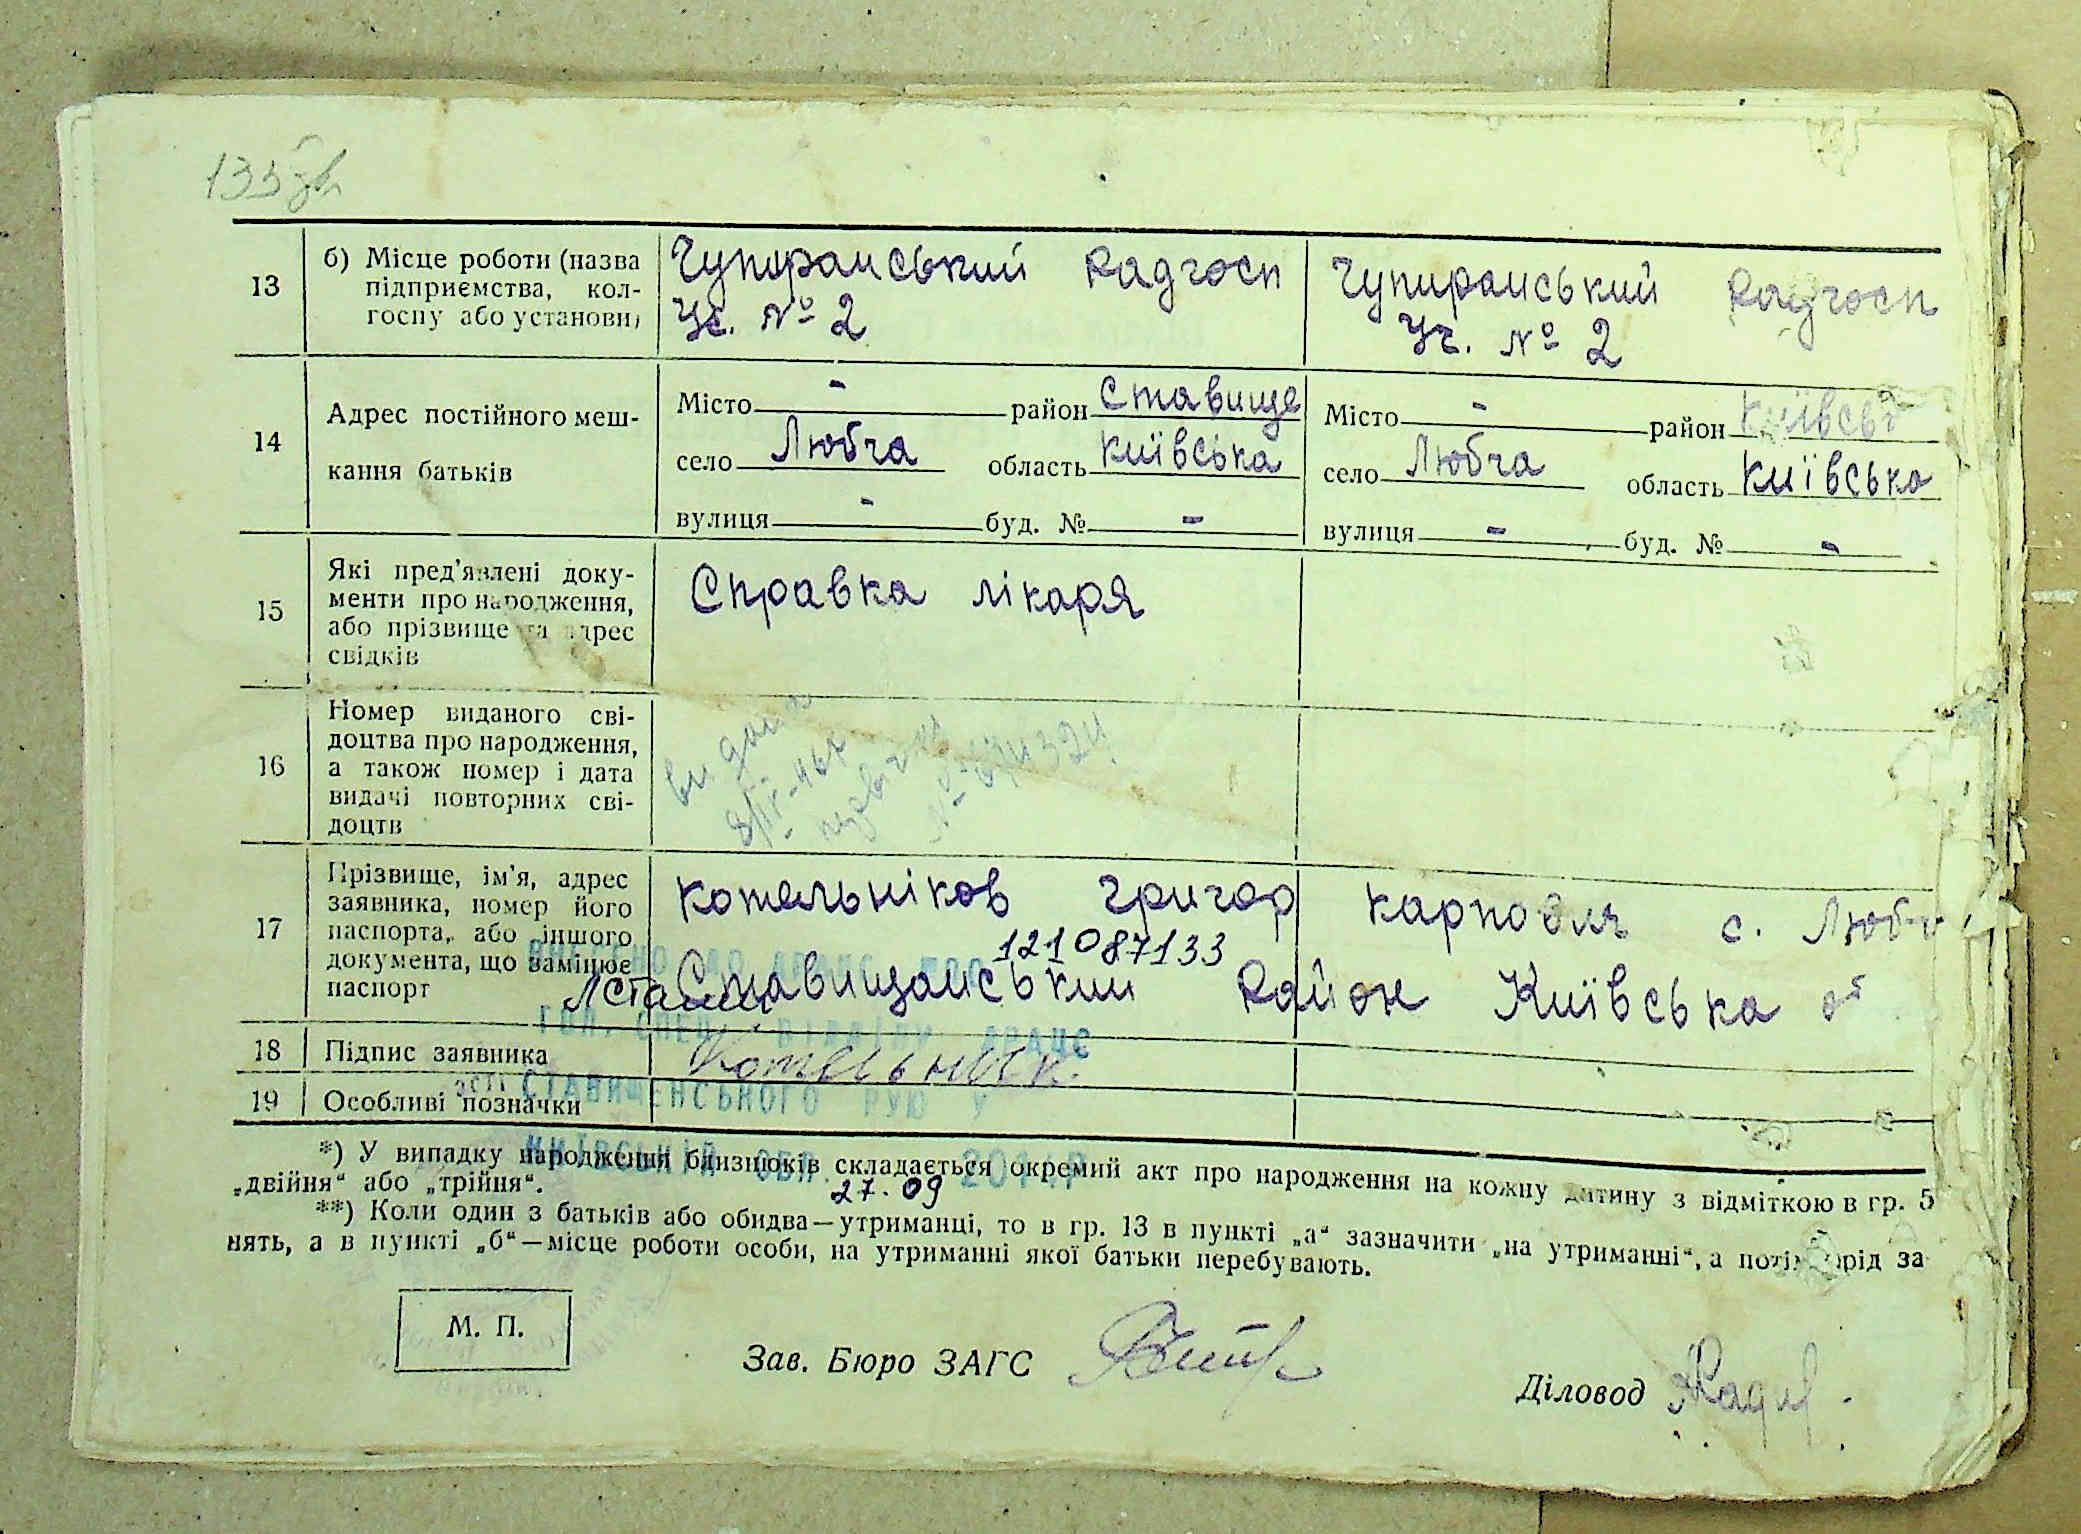 13
б) Місце роботи (назва
підприємства, кол-
госпу або установи)
Чупиранський Радгосп
Уч. № 2
Чупиранський Радгосп
Уч. № 2
14
Адрес постійного меш-
кання батьків
Місто - район Ставище
село Любча область Київська
вулиця - буд. № -
Місто - район
село Любча область Київська
вулиця - буд. № -
15
Які пред'явлені доку-
менти про народження,
або прізвище та адрес
свідків
Справка лікаря
16
Номер виданого сві-
доцтва про народження,
а також номер і дата
видачі повторних сві-
доцтв
17
Прізвище, ім'я, адрес
заявника, номер його
паспорта, або іншого
документа, що замінює
паспорт
Котельніков Григор с.
121087133
Ставищанський Район Київська
18
Підпис заявника
19
Особливі позначки
СТАВИЩЕНСЬКОГО РУЮ У
КИЇВСЬКІЙ ОБЛ.
27.09
*) У випадку народження близнюків складається окремий акт про народження на кожну дитину з відміткою в гр. 5
„двійня“ або „трійня“.
**) Коли один з батьків або обидва—утриманці, то в гр. 13 в пункті „а“ зазначити „на утриманні“, а потім рід за-
нять, а в пункті „б“—місце роботи особи, на утриманні якої батьки перебувають.
М. П.
Зав. Бюро ЗАГС
Діловод